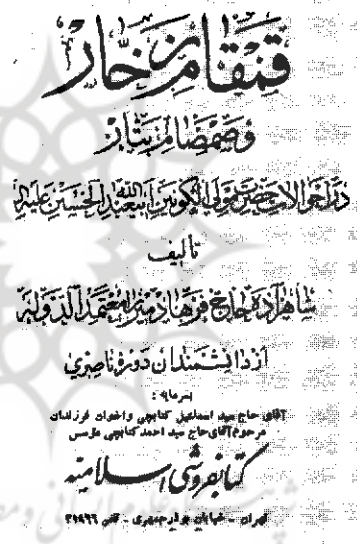 قمقام زخار
و صمصام بتار
در احوالات حضرت مولی الکونین ابیعبدالله الحسین علیه
تألیف
شاهزاده حاج فرهاد میرزا معتمدالدوله
از دانشمندان دوره ناصری
بسرمایه :
آقای حاج سید اسمعیل کتابچی و اخوان فرزندان
مرحوم آقای حاج سید احمد کتابچی
کتابفروشی اسلامیه
تهران - خیابان بوذرجمهری - تلفن